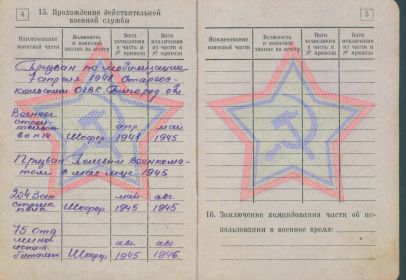 4
15. Прохождение действительной
военной службы
Наименование воинской части
Должность и воинское звание по штату
Дата зачисления в часть и № приказа
Дата исключения из части и № приказа
Призван по мобилизации
7 апреля 1941 Старооскольским
Военное
строительство
Шофер
апр 1941
май 1945
Призван Полевым Военкоматом
в мае м-це 1945
204 Зап
стрелк
полк
Шофер
май 1945
авг. 1945
75 отд
батальон
Шофер
авг. 1945
авг. 1946
5
Наименование воинской части
Должность и воинское звание по штату
Дата зачисления в часть и № приказа
Дата исключения из части и № приказа
16. Заключение командования части об использовании в военное время: